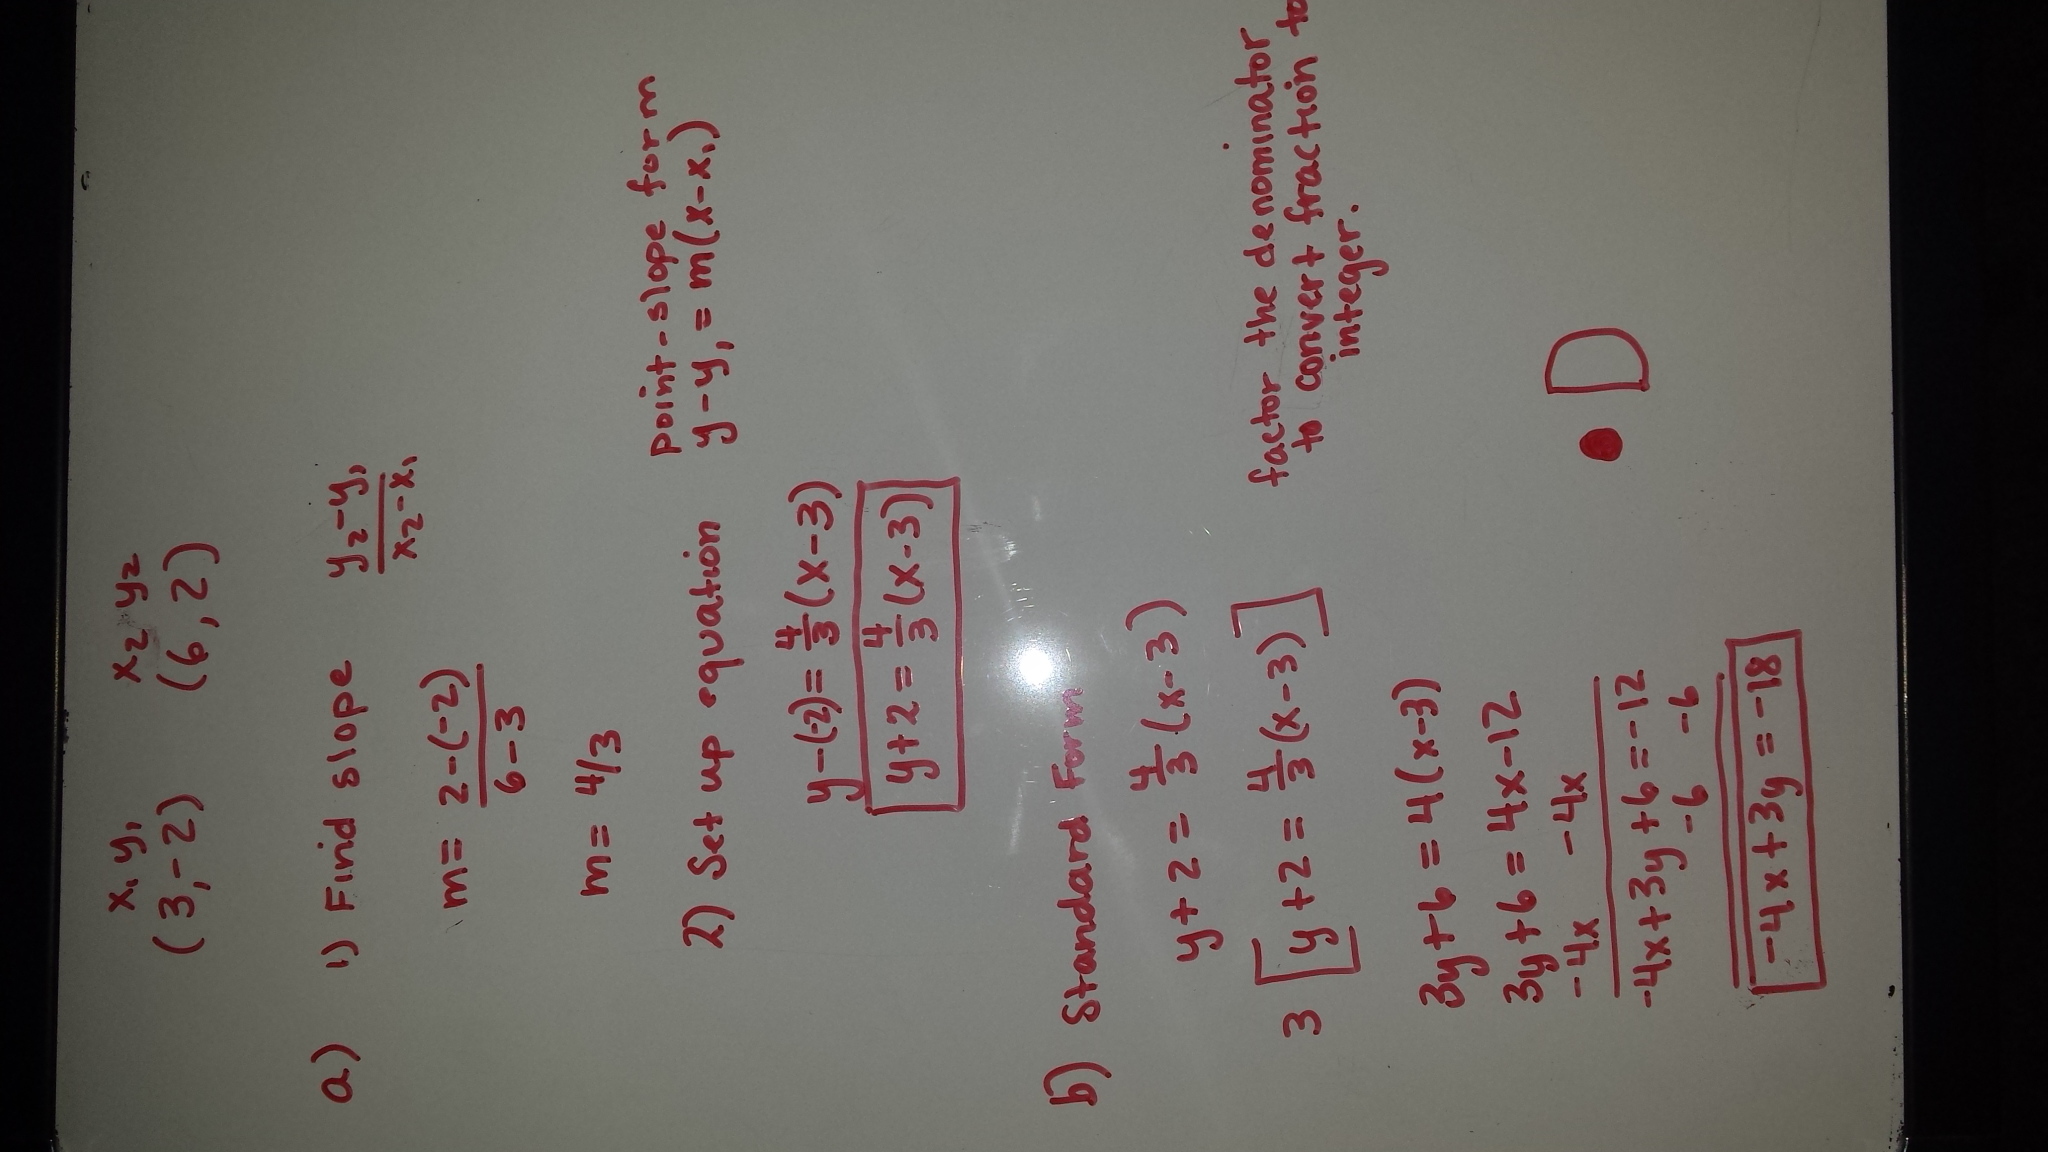 x₁ y₁ x₂ y₂
(3,-2) (6,2)
a) 1) Find slope y₂-y₁/x₂-x₁
m= 2-(-2)/6-3
m= 4/3
2) Set up equation point-slope form
y-y₁=m(x-x₁)
y-(-2)=4/3(x-3)
y+2=4/3(x-3)
b) Standard Form
y+2=4/3(x-3)
3[y+2=4/3(x-3)] factor the denominator
to convert fraction to
integer.
3y+6=4(x-3)
3y+6=4x-12
-4x -4x
-4x+3y+6=-12
-6 -6
-4x+3y=-18
D